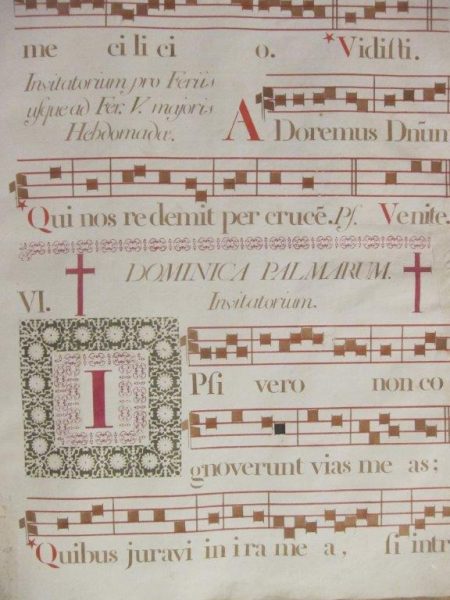 me ci li ci o. *Vidiſti.
Invitatorium pro Feriis
uſque ad Fer. V. majoris
Hebdomadæ.
ADoremus Dñũn
*Qui nos redemit per crucē. Pſ. Venite.
DOMINICA PALMARUM.
VI. Invitatorium.
IPſi vero non co
gnoverunt vias me as;
*Quibus juravi in ira me a, ſi intr